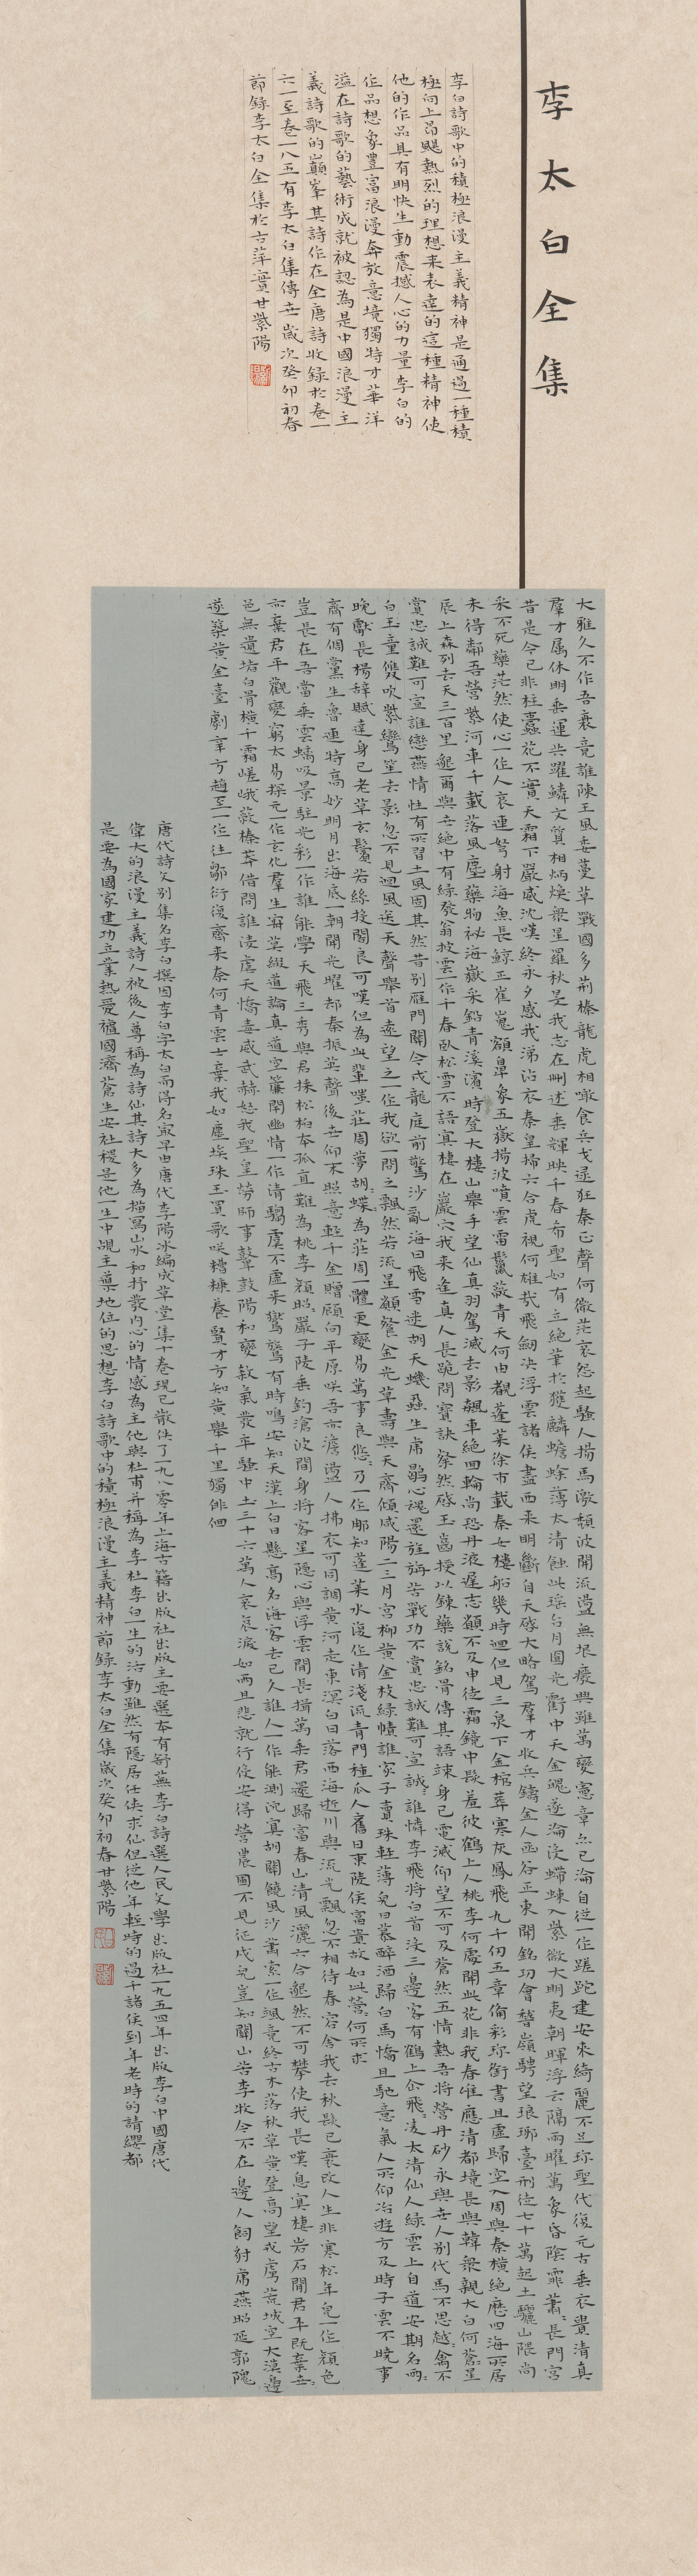 李太白全集
李白詩歌中的積極浪漫主義精神是通過一種積
極向上昂颺熱烈的理想来表達的這種精神使
他的作品具有明快生動震撼人心的力量李白的
作品想象豐富浪漫奔放意境獨特才華洋
溢在詩歌的藝術成就被認為是中國浪漫主
義詩歌的巔峯其詩作在全唐詩收録於卷一
六一至卷一八五有李太白集傳世歲次癸卯初春
節録李太白全集於古萍實廿紫陽
大雅久不作吾衰竟誰陳王風委蔓草戰國多荆榛龍虎相啖食兵戈逮狂秦正聲何微茫哀怨起騷人揚馬激頹波開流蕩無垠廢興雖萬變憲章亦已淪自從一作蹉跎建安來綺麗不足珍聖代復元古垂衣貴清真
羣才属休明乘運共躍鱗文質相炳焕衆星羅秋旻我志在刪述垂輝映千春希聖如有立絶筆於獲麟蟾蜍薄太清蝕此瑶台月圓光虧中天金魄遂淪没螮蝀入紫微大明夷朝暉浮云隔兩曜萬象昏陰霏蕭蕭長門宫
昔是今已非桂蠹花不實天霜下嚴威沈嘆終永夕感我涕沾衣秦皇掃六合虎視何雄哉飛劒决浮雲諸侯盡西来明斷自天啓大略駕羣才收兵鑄金人函谷正東開銘功會稽嶺騁望琅琊臺刑徒七十萬起土驪山隈尚
采不死藥茫然使心一作人哀連弩射海魚長鯨正崔嵬額鼻象五嶽揚波噴雲雷鬐鬣蔽青天何由覩蓬萊徐市載秦女樓船幾時迴但見三泉下金棺葬寒灰鳳飛九千仞五章備彩珍銜書且虛歸空入周與秦横絶歷四海所居
未得鄰吾營紫河車千載落風塵藥物祕海嶽采鉛青溪濱時登大樓山舉手望仙真羽駕滅去影飆車絶回輪尚恐丹液遲志願不及申徒霜鏡中髮羞彼鶴上人桃李何處開此花非我春唯應清都境長與韓衆親太白何蒼蒼星
辰上森列去天三百里邈爾與世絶中有緑髮翁披雲一作千春卧松雪不語冥棲在巖穴我来逢真人長跪問寶訣粲然啓玉齒授以鍊藥説銘骨傳其語竦身已電滅仰望不可及蒼然五情熱吾將營丹砂永與世人别代馬不思越越禽不
白玉童雙吹紫鸞笙去影忽不見迴風送天聲舉首遠望之一作我欲一問之飄然若流星願餐金光草壽與天齊傾咸陽二三月宫柳黄金枝緑幘誰家子賣珠輕薄兒日暮醉酒歸白馬憍且馳意氣人所仰冶遊方及時子雲不曉事
晚獻長楊辭賦達身已老草玄鬢若絲投閣良可嘆但為此輩嗤莊周夢胡蝶胡蝶為莊周一體更變易萬事良悠悠乃一作那知蓬萊水復作清淺流青門種瓜人舊日東陵侯富貴故如此營營何所求
齊有倜儻生魯連特高妙明月出海底一朝開光曜却秦振英聲後世仰末照意輕千金贈顧向平原咲吾亦澹蕩人拂衣可同調黄河走東溟白日落西海逝川與流光飄忽不相待春容舍我去秋髮已衰改人生非寒松年皃一作顔色
豈長在吾當乘雲螭吸景駐光彩一作誰能學天飛三秀與君採松柏本孤直難為桃李顔昭昭嚴子陵垂釣滄波間身將客星隱心與浮雲閒長揖萬乘君還歸富春山清風灑六合邈然不可攀使我長嘆息冥棲岩石間君平既棄世世
亦棄君平觀變窮太易探元一作玄化羣生寂莫綴道論真道空簾閉幽情一作清騶虞不虛来鸑鷟有時鳴安知天漢上白日懸高名海客去已久誰人一作能測沉冥胡關饒風沙蕭索一作颯竟終古木落秋草黄登高望戎虜荒城空大漠邊
邑無遺堵白骨横千霜嵯峨蔽榛莽借問誰凌虐天憍毒威武赫怒我聖皇勞師事鼙鼓陽和變殺氣發卒騷中土三十六萬人哀哀淚如雨且悲就行役安得營農圃不見征戍兒豈知關山苦李牧今不在邊人飼豺虎燕昭延郭隗
遂築黄金臺劇辛方趙至一作往鄒衍復齊来奈何青雲士棄我如塵埃珠玉買歌咲糟糠養賢才方知黄舉千里獨俳佪
唐代詩文别集名李白撰因李白字太白而得名最早由唐代李陽冰編成草堂集十卷現已散佚了一九八零年上海古籍出版社出版主要選本有舒蕪李白詩選人民文學出版社一九五四年出版李白中國唐代
偉大的浪漫主義詩人被後人尊稱為詩仙其詩大多為描寫山水和抒發内心的情感為主他與杜甫并稱為李杜李白一生的活動雖然有隱居任侠求仙但從他年輕時的過干諸侯到年老時的請纓都
是要為國家建功立業熱愛祖國濟蒼生安社稷是他一生中占主導地位的思想李白詩歌中的積極浪漫主義精神節録李太白全集歲次癸卯初春廿紫陽